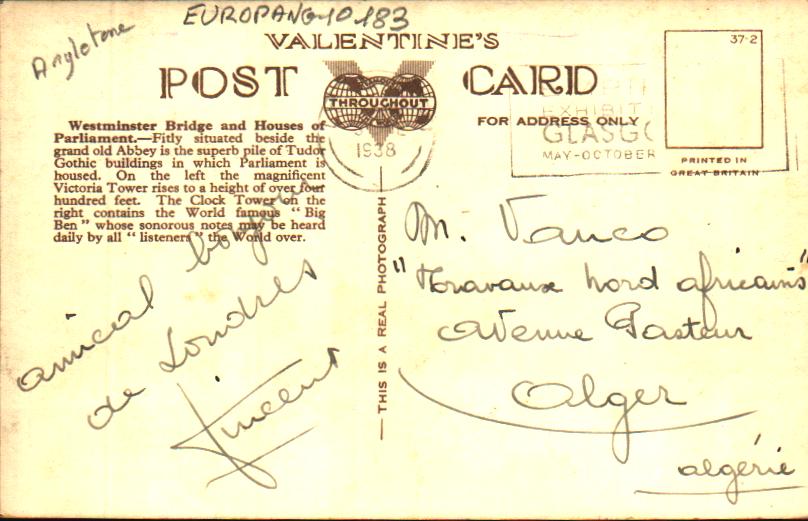 EUROPANG-10-183
Angleterre
VALENTINE'S
POST CARD
THROUGHOUT
FOR ADDRESS ONLY
37-2
PRINTED IN
GREAT BRITAIN
1938
EXHIBIT
GLASG
MAY-OCTOBER
Westminster Bridge and Houses of
Parliament.—Fitly situated beside the
grand old Abbey is the superb pile of Tudor
Gothic buildings in which Parliament is
housed. On the left the magnificent
Victoria Tower rises to a height of over four
hundred feet. The Clock Tower on the
right contains the World famous "Big
Ben" whose sonorous notes may be heard
daily by all "listeners" the World over.
amical bonjour
de Londres
Vincent
— THIS IS A REAL PHOTOGRAPH
M. Vanco
"Travaux Nord africains"
Avenue Pasteur
Alger
algérie